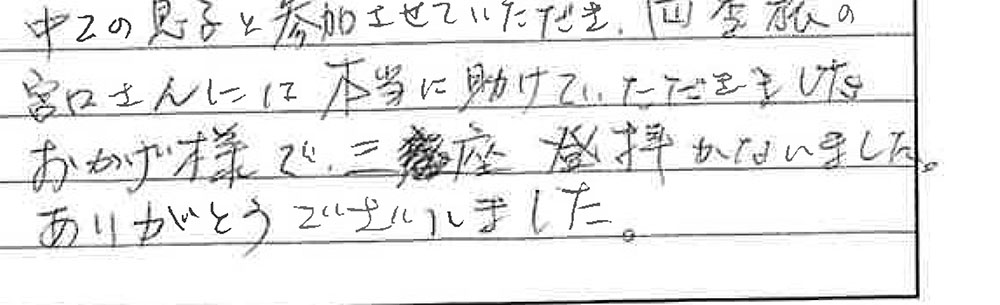 中2の息子と参加させていただき、四季旅の
宮口さんには本当に助けていただきました
おかげ様で、三座登拝かないました。
ありがとうございました。